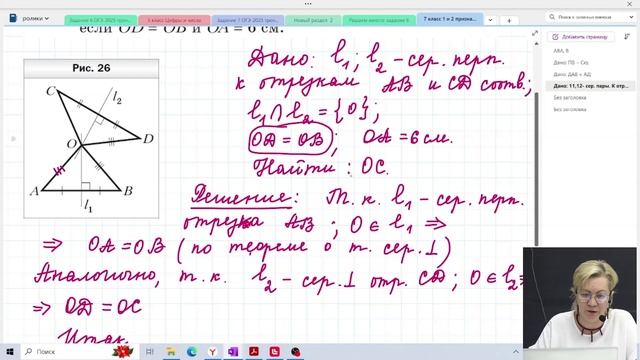 ролики
Задание 6 ОГЭ 2025 трен
5 класс Цифры и числа
Задание 7 ОГЭ 2025 трен
Новый раздел 2
Решаем вместе задание 6
7 класс 1 и 2 призна
Добавить страницу
АВА, В
Без заголовка
Без заголовка
если OD = OB и OA = 6 см.
Рис. 26
C
l₂
D
O
A
B
l₁
Дано: l₁; l₂ – сер. перп.
к отрезкам AB и CD соотв;
l₁ ∩ l₂ = {O};
OD = OB; OA = 6 см.
Найти: OC.
Решение: Т. к. l₁ – сер. перп.
отрезка AB; O ∈ l₁ ⟹
⟹ OA = OB (по теореме о т. сер. ⊥)
Аналогично, т. к. l₂ – сер. ⊥ отр. CD; O ∈ l₂ ⟹
⟹ OD = OC
Итак,
Поиск